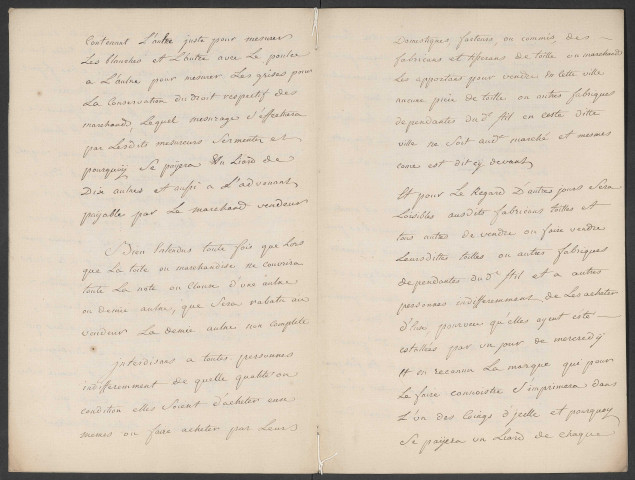 Contenant L'autre juste pour mesurer
Les blanches et L'autre avec Le poulce
a L'autre pour mesurer Les grises pour
La Conservation du droit respectif des
marchand, Lequel mesurage s'effectuera
par Lesdits mesureurs Sermentez et
pourquoy Se payera Un Liard de
Dix autres et aussi a L'advenant
payable par Le marchand vendeur
Bien Entendus toute fois que Lors
que La toile ou marchandise ne couvrira
toute La note ou Clause d'une aulne
ou demie aulne, que Sera rabatu au
vendeur La demie aulne non complete
interdisons a toutes personnes
indifferemment de quelle qualité ou
condition elles Soient d'acheter eux
memes ou faire acheter par Leurs
Domestiques, facteurs, ou commis, des
fabricans et tisserans de toille ou marchand
Les apportées pour vendre en cette ville
aucune pièce de toille ou autres fabriques
dependantes du dt stil en cette ditte
ville ne Soit audt marché et mesmes
come est dit cy devant
Et pour Le Regard D'autres jours Sera
Loisible ausdits fabricans toilles et
tous autres de vendre ou faire vendre
Leursdittes toilles ou autres fabriques
dependantes du dt stil et a autres
personnes indifferemment de Les acheter
d'eux pourveu qu'elles ayent esté
estallées par un jour de mercredÿ
et en reconnu La marque qui pour
Le faire connoistre S'imprimera dans
L'un des Coings d'jcelle et pourquoy
Se payera un Liard de chaque